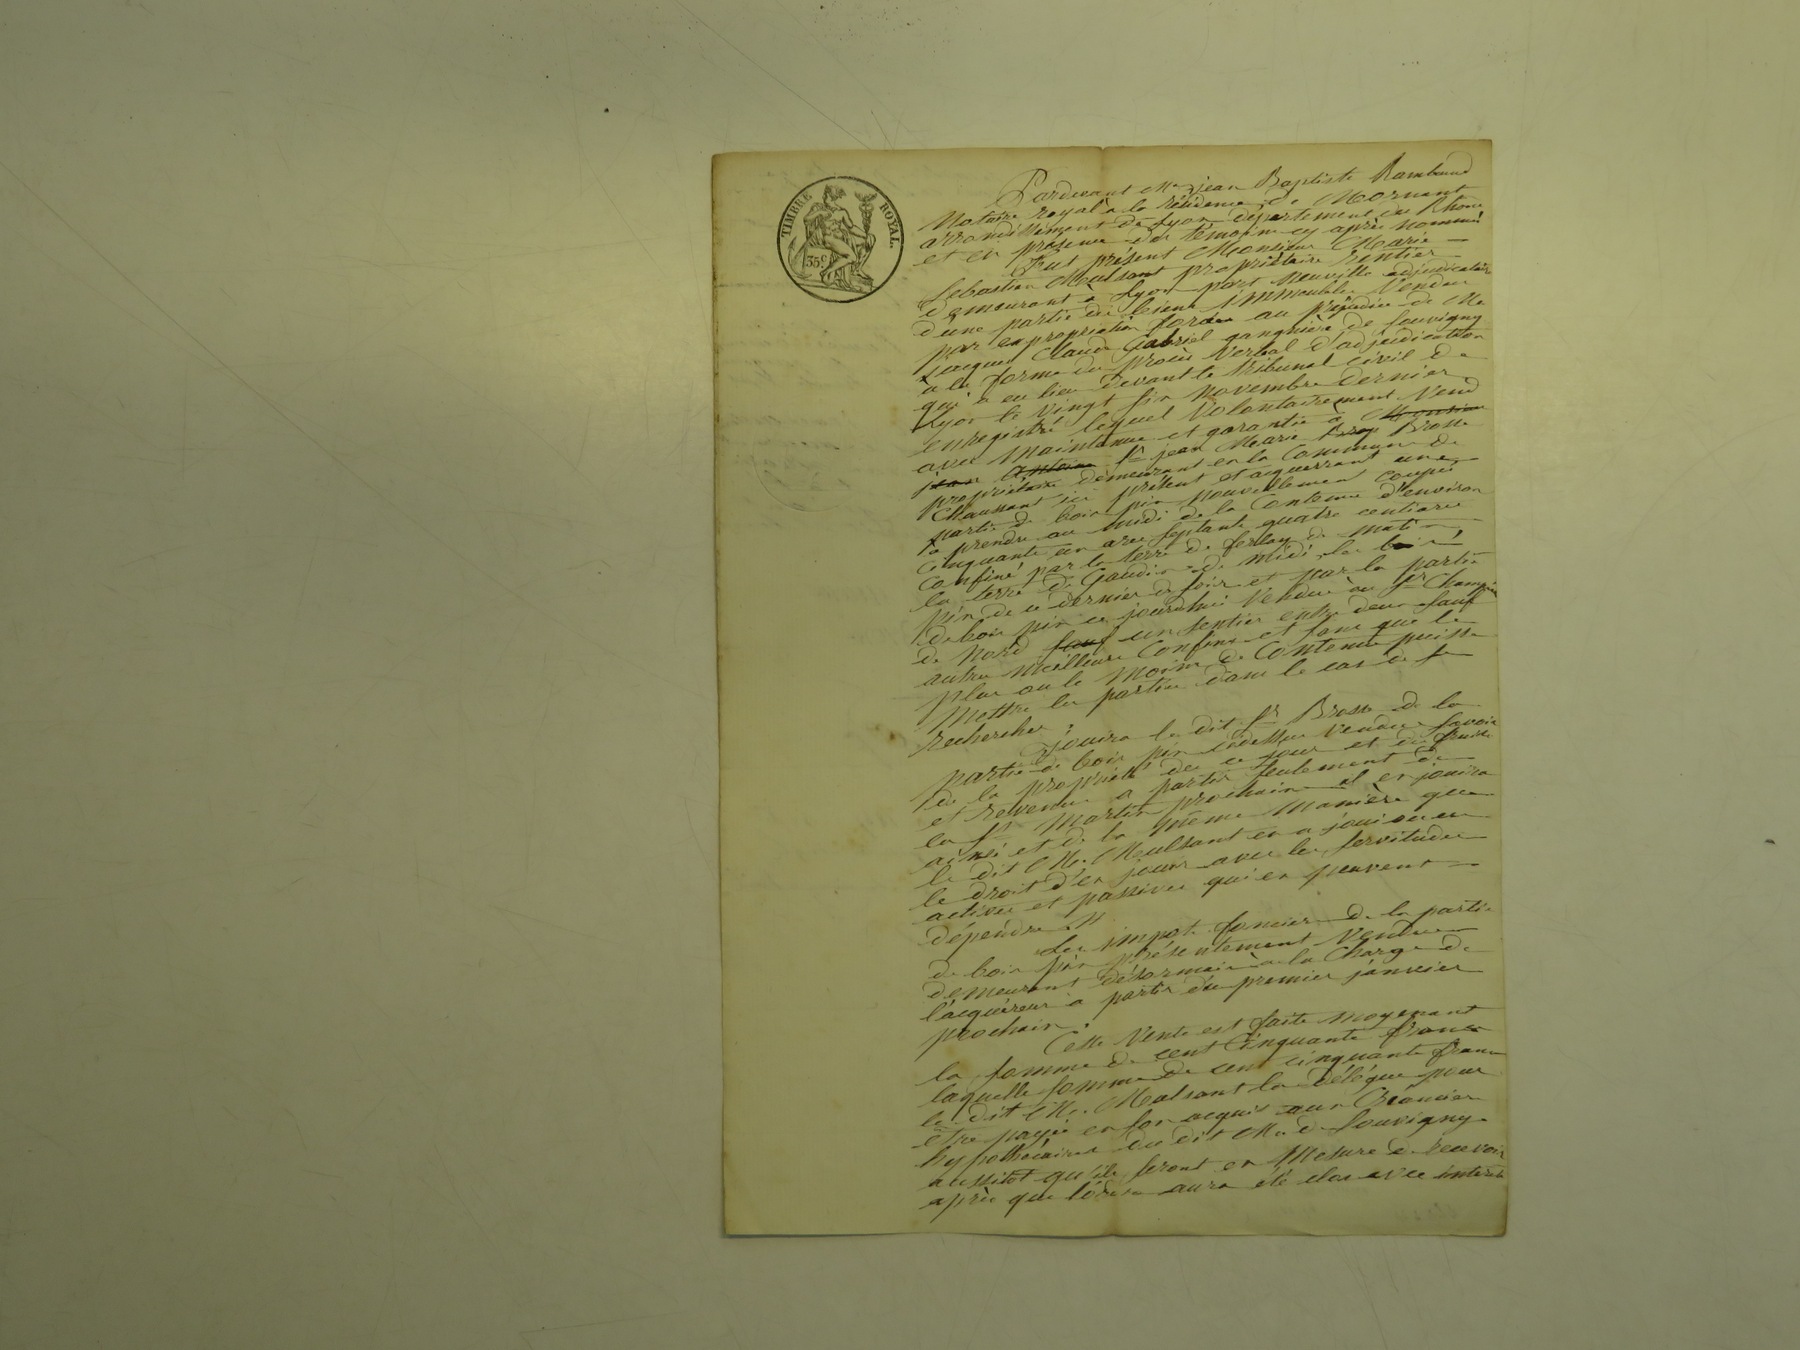 TIMBRE ROYAL.
35 C
Pardevant Me jean Baptiste Rambaud
Notaire royal à la résidence de Mornant
arrondissement de Lyon département du Rhône
et en présence des témoins cy après nommés
Fut présent Monsieur Marie
Sebastien Mulsant propriétaire rentier
demeurant à Lyon port Neuville adjudicataire
d'une partie des biens immeubles vendus
par expropriation forcée au préjudice de Me
Jacques Claude Gabriel gangnière de Souvigny
à la forme du procès verbal d'adjudication
qui a eu lieu devant le tribunal civil de
Lyon le vingt six novembre dernier
enregistré lequel volontairement vend
avec maintenue et garantie à Monsieur
jean Antoine Sr jean Marie Brosse
propriétaire demeurant en la Commune de
Chaussant ici présent et acquerrant une
partie de bois pin nouvellement coupé
à prendre au midi de la Contenue d'environ
cinquante un ares septante quatre centiares
confiné par la terre de ferlay de matin,
la terre de Gaudin de midi, le bois
pin de ce dernier de soir et par la partie
de bois pin ce jourdhui vendue au Sr
de nord sauf un sentier entre deux sauf
autres meilleurs Confins et sans que le
plus ou le moins de Contenue puisse
mettre les parties dans le cas de se
rechercher.
Jouira le dit Sr Brosse de la
partie de bois pin cidessus vendue savoir
de la propriété dès ce jour et des fruits
et revenus à partir seulement de
la St Martin prochaine il en jouira
ainsi et de la même manière que
le dit Mr. Mulsant en a joui ou eu
le droit d'en jouir avec les servitudes
actives et passives qui en peuvent
dépendre //
Les impots fonciers de la partie
de bois pin présentement vendue
demeurant désormais à la Charge de
l'acquéreur à partir du premier janvier
prochain.
Cette vente est faite moyenant
la somme de cent cinquante francs
laquelle somme de cent cinquante francs
le dit Mr. Mulsant la délégue pour
être payée en son acquis aux Créanciers
hypothécaires du dit Mr. de Souvigny
aussitôt qu'ils seront en Mesure de recevoir
après que l'ordre aura été clos avec intérêts